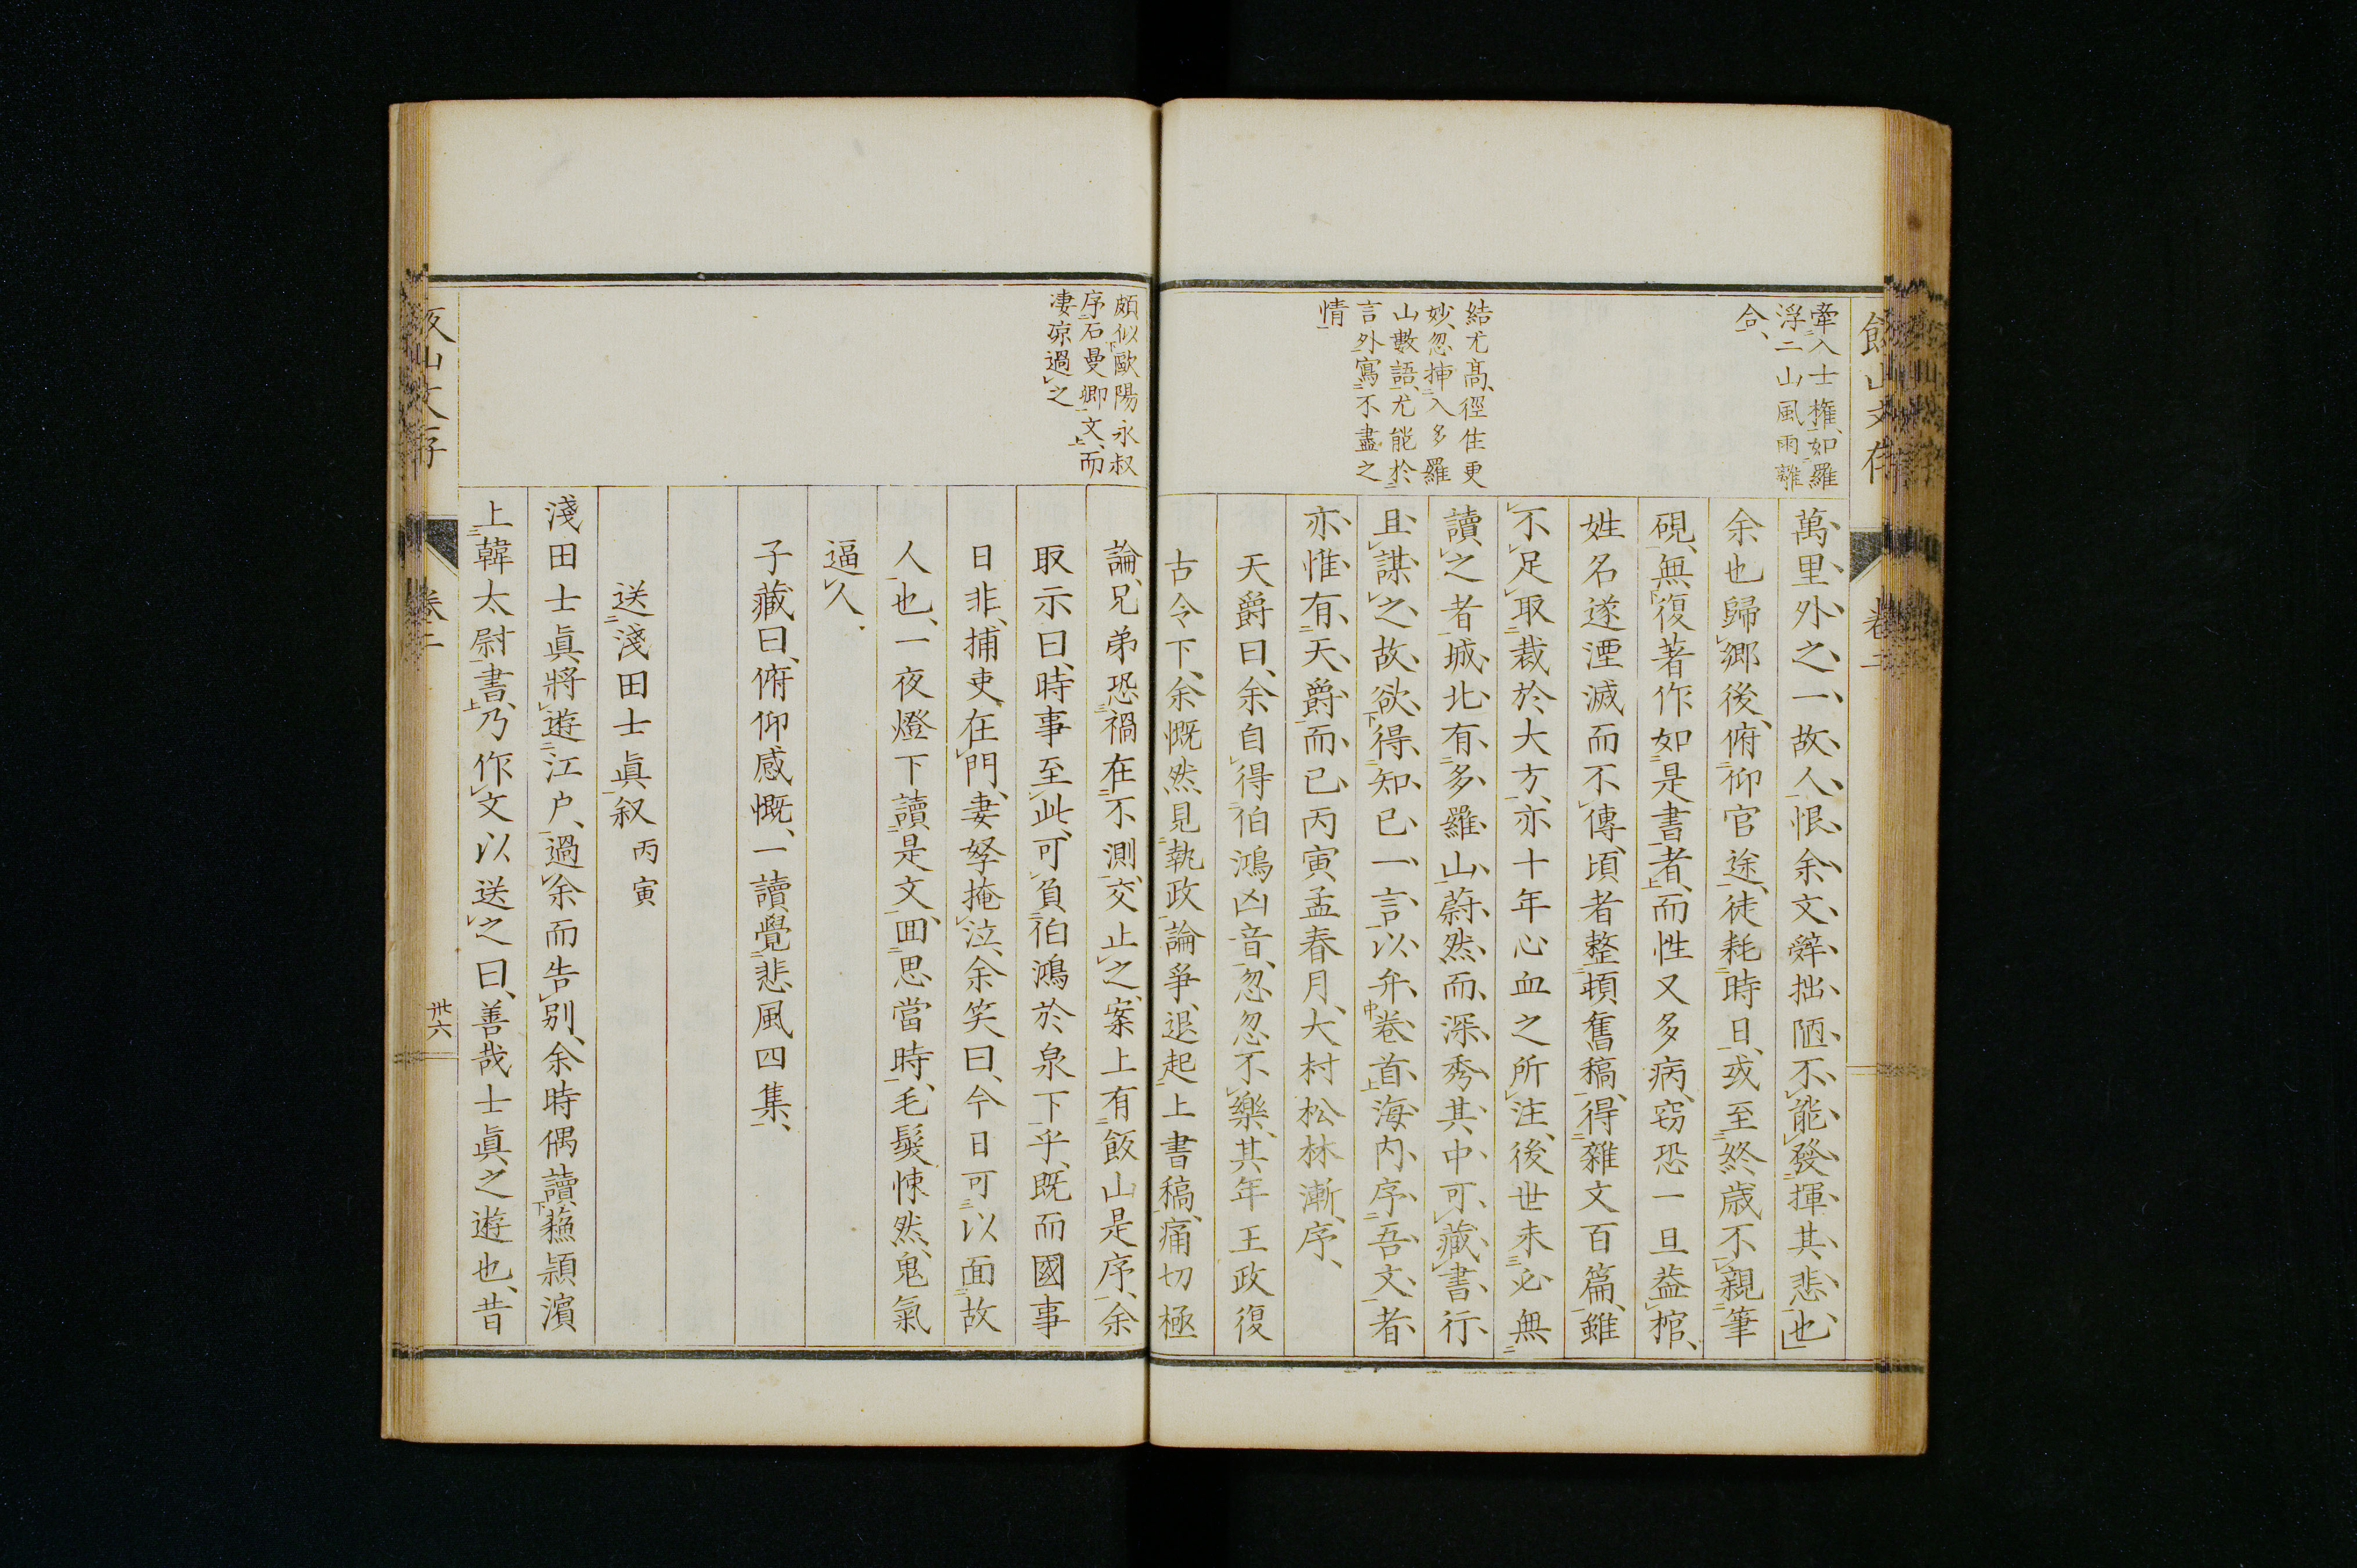 飯山文存
卷二
牽入士権、如羅
浮二山風雨離
合、
結尤髙、徑住更
妙、忽挿入多羅
山數語、尤能於
言外寫不盡之
情
萬里外之一故人、恨余文辭拙陋不能發揮其悲也」
余也歸郷後、俯仰官途、徒耗時日、或至終歳不親筆
硯、無復著作如是書者、而性又多病、窃恐一旦葢棺、
姓名遂湮滅而不傳、頃者整頓舊稿、得雜文百篇、雖
不足取裁於大方、亦十年心血之所注、後世未必無
讀之者、城北有多羅山、蔚然而深秀、其中可藏書、行
且謀之、故欲得知己一言、以弁卷首、海内序吾文者、
亦惟有天爵而已、丙寅孟春月、大村松林漸序、
天爵曰、余自得伯鴻凶音、忽忽不樂、其年王政復
古令下、余慨然見執政論爭、退起上書稿、痛切極
頗似歐陽永叔
序石曼卿文、而
凄凉過之
論、兄弟恐禍在不測、交止之、案上有飯山是序、余
取示曰、時事至此、可負伯鴻於泉下乎、既而國事
日非、捕吏在門、妻孥掩泣、余笑曰、今日可以面故
人也、一夜燈下讀是文、囬思當時、毛髮悚然、鬼氣
逼人、
子藏曰、俯仰感慨、一讀覺悲風四集、
送淺田士眞叙 丙寅
淺田士眞、將遊江戸、過余而告別、余時偶讀蘓頴濱
上韓太尉書、乃作文以送之曰、善哉士眞之遊也、昔
飯山文存
卷二
卅六